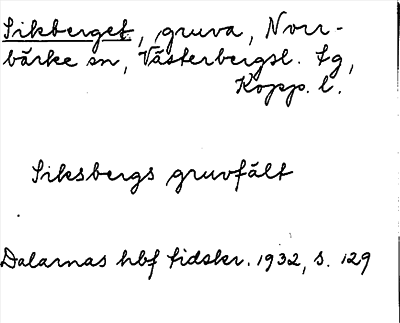 Sikberget, gruva, Norr-
bärke sn, Västerbergsl. tg,
Kopp. l.
Siksbergs gruvfält
Dalarnas hbf tidskr. 1932, s. 129